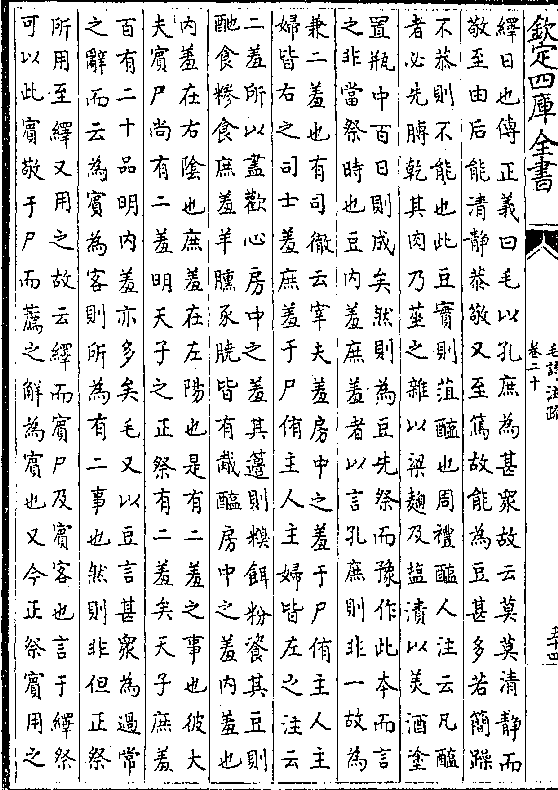 欽定四庫全書
毛詩注疏
卷二十
繹日也傳正義曰毛以孔庶為甚衆故云莫莫清静而
敬至由后能清静恭敬又至篤故能為豆甚多若簡躁
不恭則不能也此豆實則菹醢也周禮醢人注云凡醢
者必先膊乾其肉乃莝之雜以梁麴及塩漬以美酒塗
置瓶中百日則成矣然則為豆先祭而豫作此本而言
之非當祭時也豆内羞庶羞者以言孔庶則非一故為
兼二羞也有司徹云宰夫羞房中之羞于尸侑主人主
婦皆右之司士羞庶羞于尸侑主人主婦皆左之注云
二羞所以盡歡心房中之羞其籩則糗餌粉餈其豆則
酏食糝食庶羞羊臐豕膮皆有胾醢房中之羞内羞也
内羞在右陰也庶羞在左陽也是有二羞之事也彼大
夫賓尸尚有二羞明天子之正祭有二羞矣天子庶羞
百有二十品明内羞亦多矣毛又以豆言甚衆為過常
之辭而云為賓為客則所為有二事也然則非但正祭
所用至繹又用之故云繹而賓尸及賓客也言于繹祭
可以此賓敬于尸而薦之解為賓也又今正祭賓用之